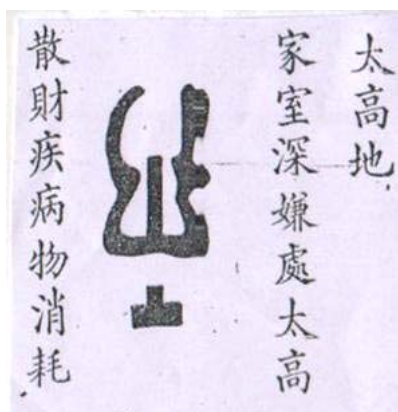 太高地
家室深嫌處太高
散財疾病物消耗